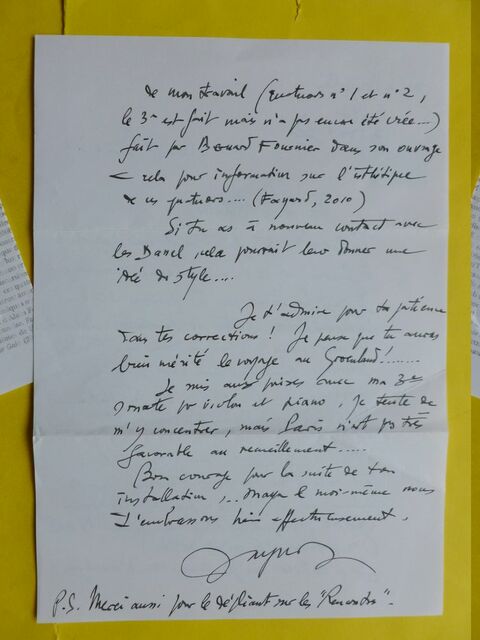 de mon travail (Quatuors n° 1 et n° 2,
le 3e est fait mais n'a pas encore été créé...)
fait par Bernard Fournier dans son ouvrage
cela pour information sur l'esthétique
de ces quatuors.... (Fayard, 2010)
Si tu as à nouveau contact avec
les Danel, cela pourrait leur donner une
idée du style....
Je t'admire pour ta patience
dans tes corrections ! Je pense que tu auras
bien mérité le voyage au Groenland!......
Je suis aux prises avec ma 3e
sonate pr violon et piano. Je tente de
m'y concentrer, mais Paris n'est pas très
favorable au recueillement.....
Bon courage pour la suite de ton
installation,... et moi-même nous
t'embrassons bien affectueusement.
P.S. Merci aussi pour le dépliant sur les "Rencontres".